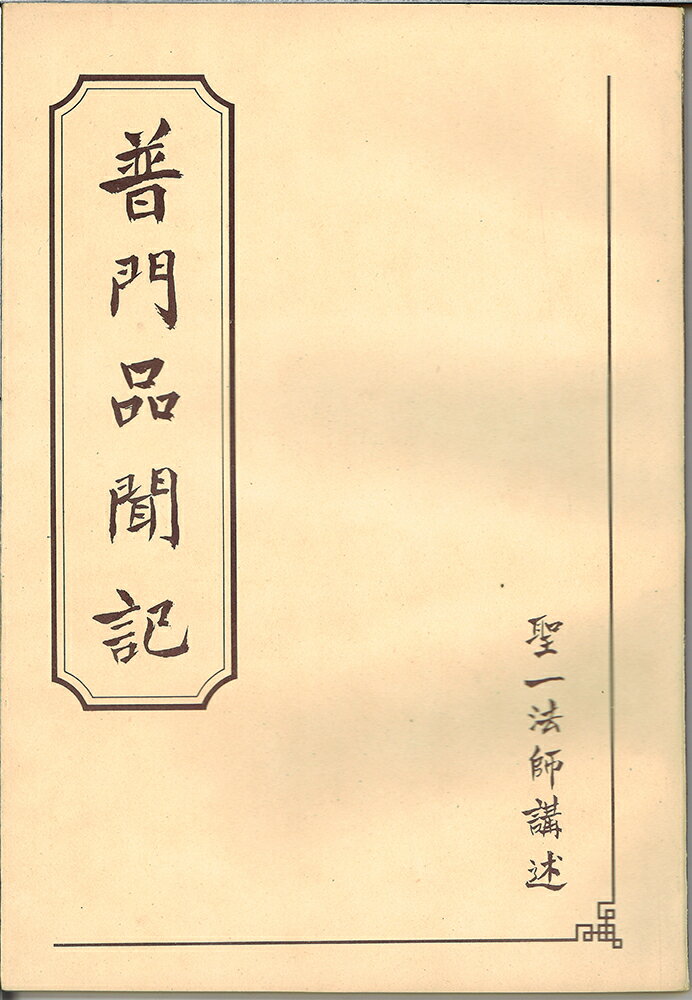 普門品聞記
聖一法師講述